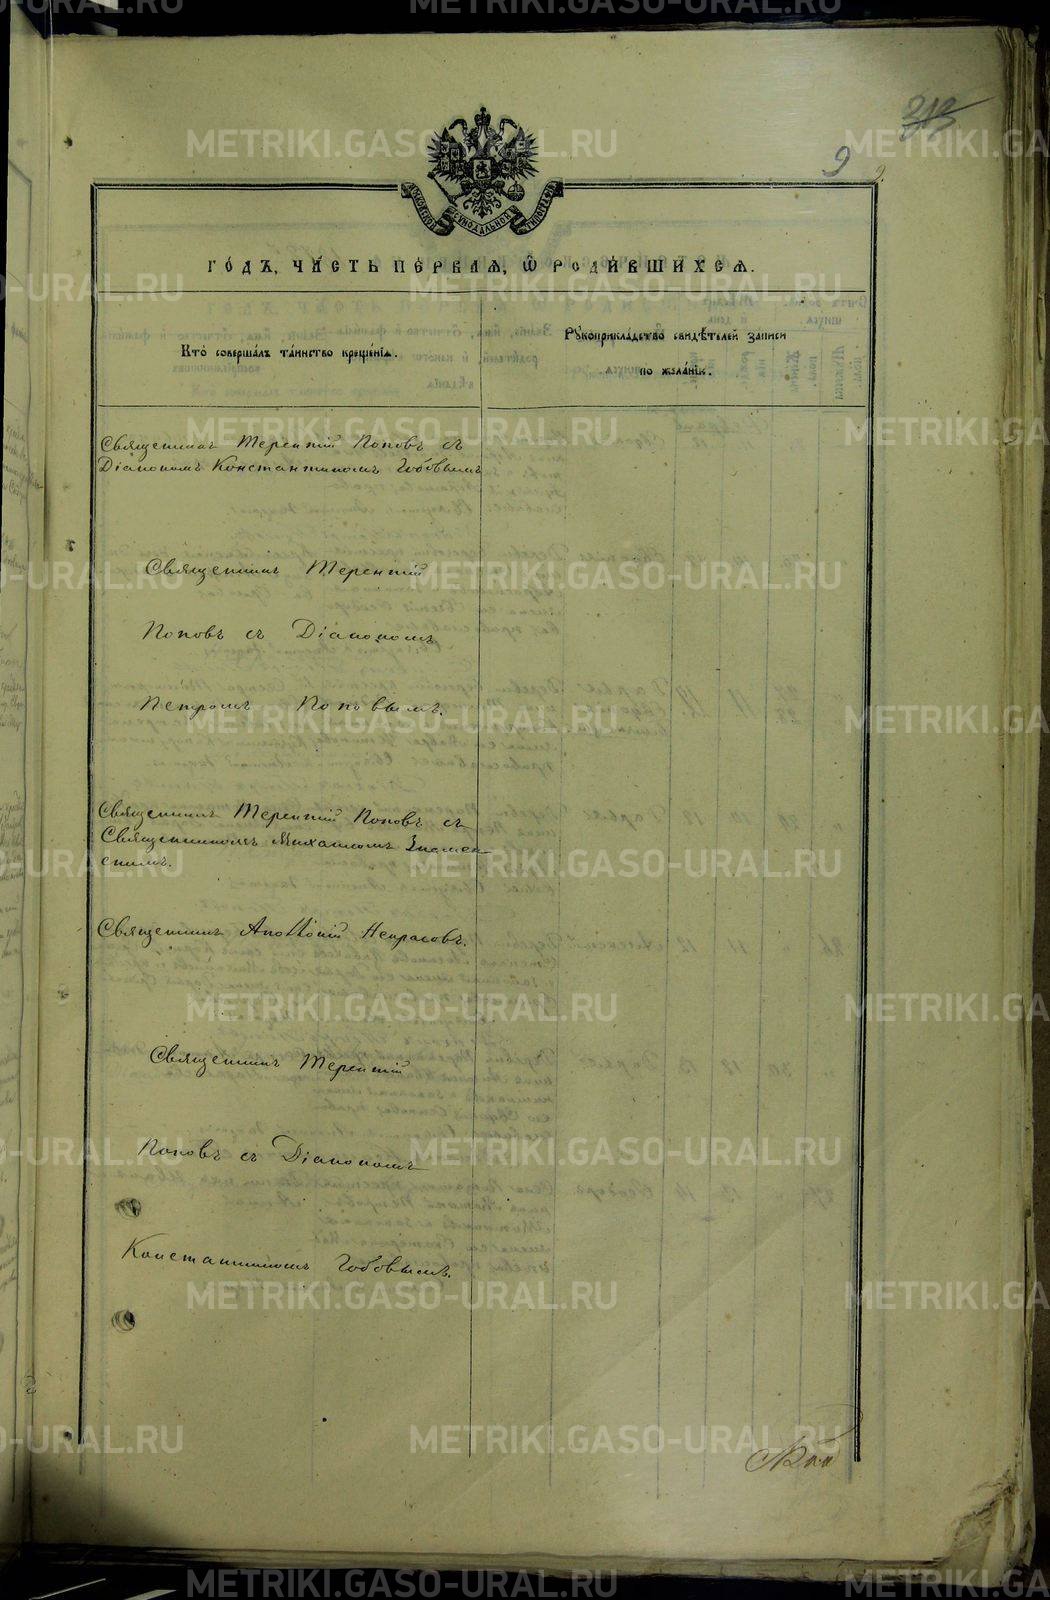 313
9
МОСКОВСКОЙ СѴНОДАЛЬНОЙ ТИПОГРАФІИ
ГОДЪ, ЧАСТЬ ПЕРВАЯ, Ѿ РОДИВШИХСЯ.
Кто совершалъ таинство крещенія.
Рꙋкоприкладство свидѣтелей записи
по желанію.
Священникъ Терентій Поповъ съ
Діакономъ Константиномъ Гобовымъ
Священникъ Терентій
Поповъ съ Діакономъ
Петромъ Поповымъ.
Священникъ Терентій Поповъ съ
Священникомъ Михаиломъ Знамен
скимъ.
Священникъ Аполлоній Некрасовъ.
Священникъ Терентій
Поповъ съ Діакономъ
Константиномъ Гобовымъ.
METRIKI.GASO-URAL.RU